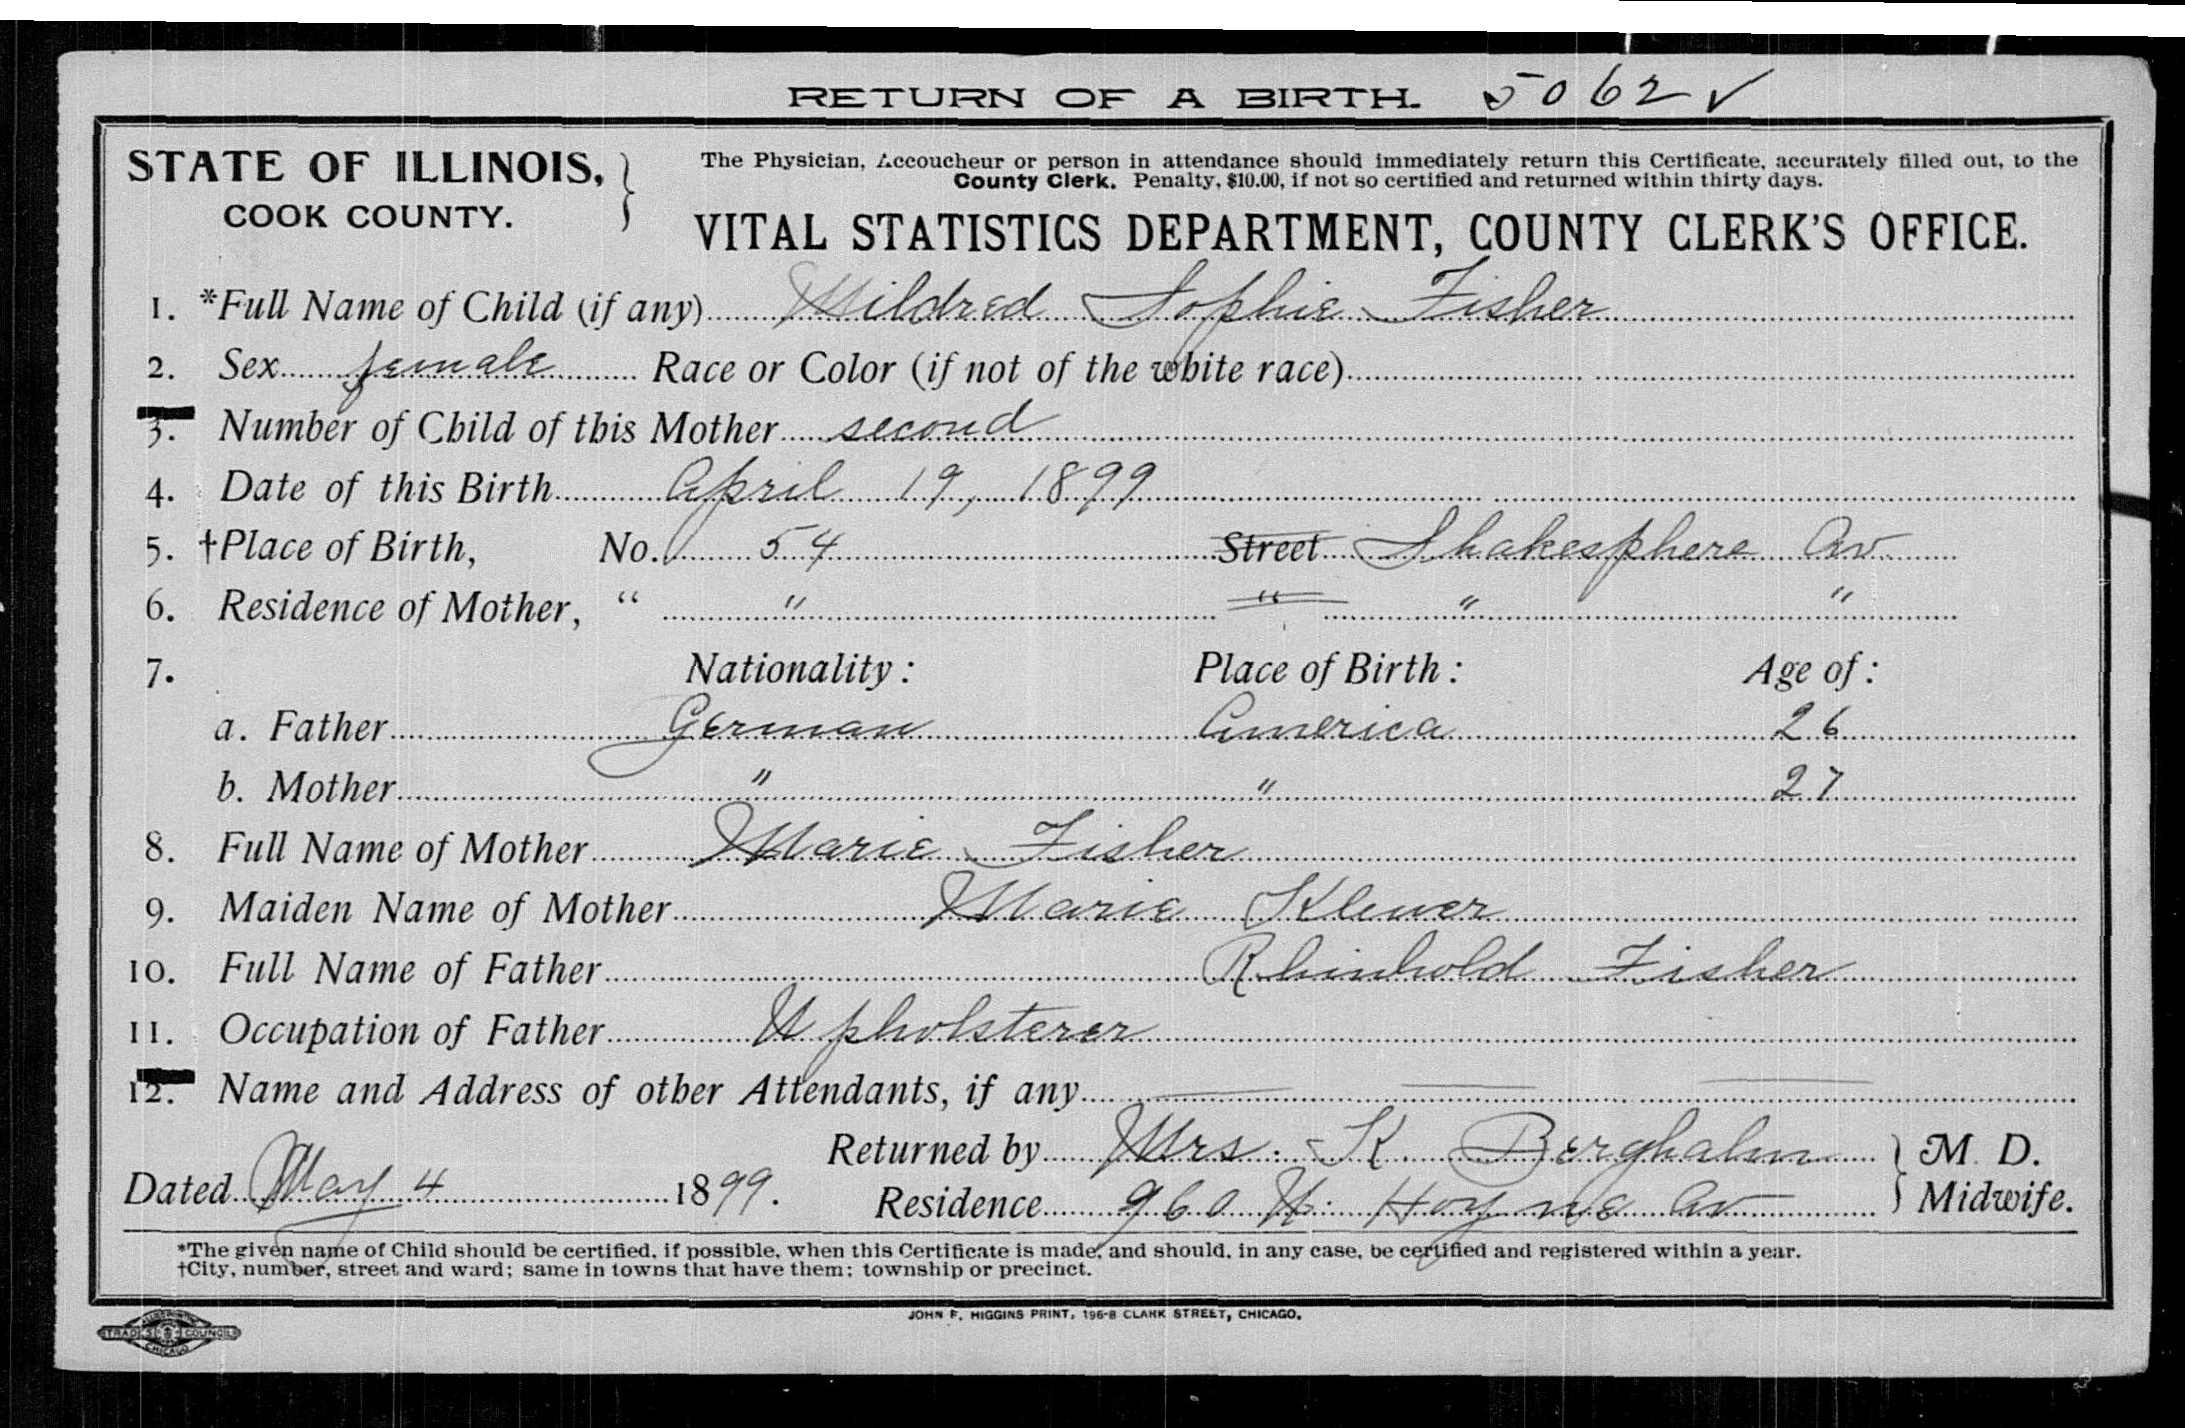 RETURN OF A BIRTH. 5062 ✓
STATE OF ILLINOIS, COOK COUNTY.
The Physician, Accoucheur or person in attendance should immediately return this Certificate, accurately filled out, to the
County Clerk. Penalty, $10.00, if not so certified and returned within thirty days.
VITAL STATISTICS DEPARTMENT, COUNTY CLERK'S OFFICE.
1. *Full Name of Child (if any) Mildred Sophie Fisher
2. Sex female Race or Color (if not of the white race)
3. Number of Child of this Mother second
4. Date of this Birth April 19, 1899
5. †Place of Birth, No. 54 Street Shakesphere Av
6. Residence of Mother, " " " " "
7. Nationality: Place of Birth: Age of:
a. Father German America 26
b. Mother " " 27
8. Full Name of Mother Marie Fisher
9. Maiden Name of Mother Marie Klewer
10. Full Name of Father Rhinhold Fisher
11. Occupation of Father Upholsterer
12. Name and Address of other Attendants, if any
Returned by Mrs. K. Berghalm M. D.
Dated May 4 1899. Residence 960 N. Hoyne Av Midwife.
*The given name of Child should be certified, if possible, when this Certificate is made, and should, in any case, be certified and registered within a year.
†City, number, street and ward; same in towns that have them; township or precinct.
JOHN F. HIGGINS PRINT, 196-8 CLARK STREET, CHICAGO.
TRADES COUNCIL
CHICAGO